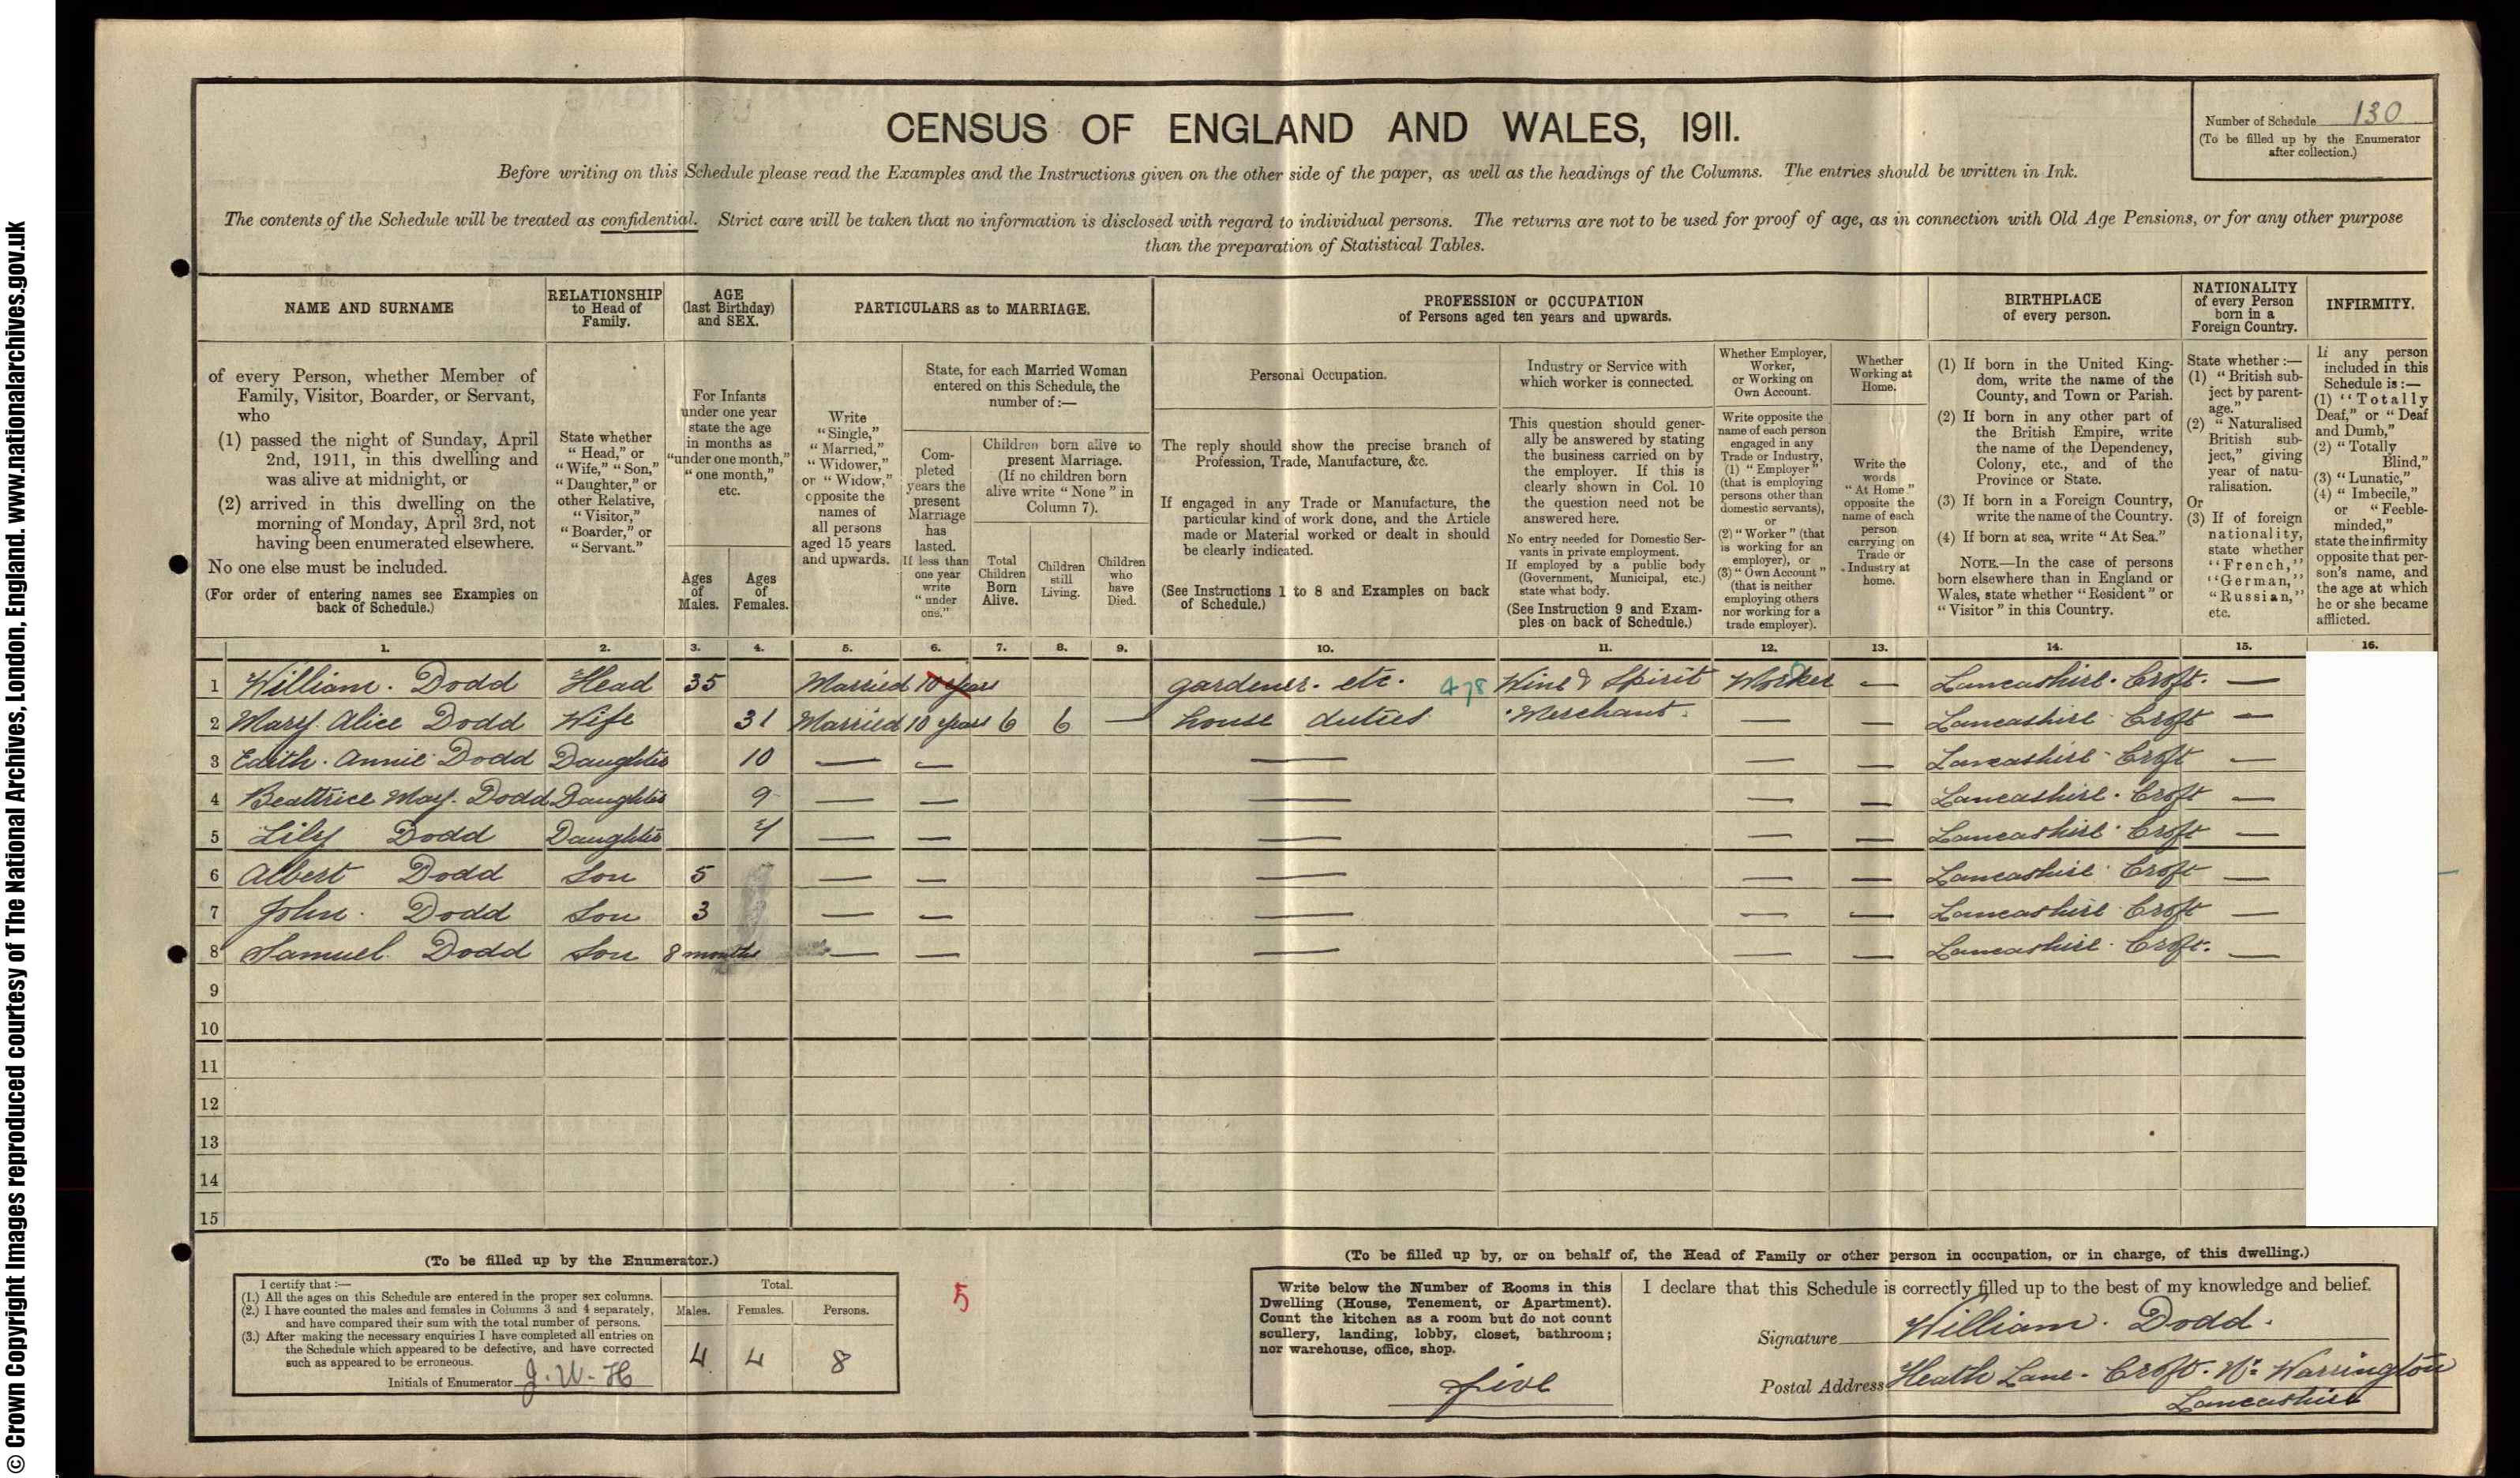 © Crown Copyright Images reproduced courtesy of The National Archives, London, England. www.nationalarchives.gov.uk
CENSUS OF ENGLAND AND WALES, 1911.
Number of Schedule 130
(To be filled up by the Enumerator
after collection.)
Before writing on this Schedule please read the Examples and the Instructions given on the other side of the paper, as well as the headings of the Columns. The entries should be written in Ink.
The contents of the Schedule will be treated as confidential. Strict care will be taken that no information is disclosed with regard to individual persons. The returns are not to be used for proof of age, as in connection with Old Age Pensions, or for any other purpose
than the preparation of Statistical Tables.
NAME AND SURNAME
of every Person, whether Member of
Family, Visitor, Boarder, or Servant,
who
(1) passed the night of Sunday, April
2nd, 1911, in this dwelling and
was alive at midnight, or
(2) arrived in this dwelling on the
morning of Monday, April 3rd, not
having been enumerated elsewhere.
No one else must be included.
(For order of entering names see Examples on
back of Schedule.)
RELATIONSHIP
to Head of
Family.
State whether
"Head," or
"Wife," "Son,"
"Daughter," or
other Relative,
"Visitor,"
"Boarder," or
"Servant."
AGE
(last Birthday)
and SEX.
For Infants
under one year
state the age
in months as
"under one month,"
"one month,"
etc.
Ages
of
Males.
Ages
of
Females.
PARTICULARS as to MARRIAGE.
Write
"Single,"
"Married,"
"Widower,"
or "Widow,"
opposite the
names of
all persons
aged 15 years
and upwards.
State, for each Married Woman
entered on this Schedule, the
number of:—
Com-
pleted
years the
present
Marriage
has
lasted.
If less than
one year
write
"under
one."
Children born alive to
present Marriage.
(If no children born
alive write "None" in
Column 7).
Total
Children
Born
Alive.
Children
still
Living.
Children
who
have
Died.
PROFESSION or OCCUPATION
of Persons aged ten years and upwards.
Personal Occupation.
The reply should show the precise branch of
Profession, Trade, Manufacture, &c.
If engaged in any Trade or Manufacture, the
particular kind of work done, and the Article
made or Material worked or dealt in should
be clearly indicated.
(See Instructions 1 to 8 and Examples on back
of Schedule.)
Industry or Service with
which worker is connected.
This question should gener-
ally be answered by stating
the business carried on by
the employer. If this is
clearly shown in Col. 10
the question need not be
answered here.
No entry needed for Domestic Ser-
vants in private employment.
If employed by a public body
(Government, Municipal, etc.)
state what body.
(See Instruction 9 and Exam-
ples on back of Schedule.)
Whether Employer,
Worker,
or Working on
Own Account.
Write opposite the
name of each person
engaged in any
Trade or Industry,
(1) "Employer"
(that is employing
persons other than
domestic servants),
or
(2) "Worker" (that
is working for an
employer), or
(3) "Own Account"
(that is neither
employing others
nor working for a
trade employer).
Whether
Working at
Home.
Write the
words
"At Home"
opposite the
name of each
person
carrying on
Trade or
Industry at
home.
BIRTHPLACE
of every person.
(1) If born in the United King-
dom, write the name of the
County, and Town or Parish.
(2) If born in any other part of
the British Empire, write
the name of the Dependency,
Colony, etc., and of the
Province or State.
(3) If born in a Foreign Country,
write the name of the Country.
(4) If born at sea, write "At Sea."
NOTE.—In the case of persons
born elsewhere than in England or
Wales, state whether "Resident" or
"Visitor" in this Country.
NATIONALITY
of every Person
born in a
Foreign Country.
State whether:—
(1) "British sub-
ject by parent-
age."
(2) "Naturalised
British sub-
ject," giving
year of natu-
ralisation.
Or
(3) If of foreign
nationality,
state whether
"French,"
"German,"
"Russian,"
etc.
INFIRMITY.
If any person
included in this
Schedule is:—
(1) "Totally
Deaf," or "Deaf
and Dumb,"
(2) "Totally
Blind,"
(3) "Lunatic,"
(4) "Imbecile,"
or "Feeble-
minded,"
state the infirmity
opposite that per-
son's name, and
the age at which
he or she became
afflicted.
1. 2. 3. 4. 5. 6. 7. 8. 9. 10. 11. 12. 13. 14. 15. 16.
1 William. Dodd Head 35 Married 10 years gardener. etc. 478 Wine & Spirit Worker — Lancashire. Croft. —
2 Mary Alice Dodd Wife 31 Married 10 years 6 6 — house duties Merchant. — — Lancashire Croft —
3 Edith. Annie Dodd Daughter 10 — — — — — Lancashire Croft —
4 Beattrice May. Dodd Daughter 9 — — — — — Lancashire. Croft —
5 Lily Dodd Daughter 7 — — — — — Lancashire Croft —
6 Albert Dodd Son 5 — — — — — Lancashire Croft —
7 John. Dodd Son 3 — — — — — Lancashire Croft —
8 Samuel Dodd Son 8 months — — — — — Lancashire. Croft. —
9
10
11
12
13
14
15
(To be filled up by the Enumerator.)
I certify that:—
(1.) All the ages on this Schedule are entered in the proper sex columns.
(2.) I have counted the males and females in Columns 3 and 4 separately,
and have compared their sum with the total number of persons.
(3.) After making the necessary enquiries I have completed all entries on
the Schedule which appeared to be defective, and have corrected
such as appeared to be erroneous.
Initials of Enumerator J. W. H
Total.
Males. Females. Persons.
4 4 8
5
(To be filled up by, or on behalf of, the Head of Family or other person in occupation, or in charge, of this dwelling.)
Write below the Number of Rooms in this
Dwelling (House, Tenement, or Apartment).
Count the kitchen as a room but do not count
scullery, landing, lobby, closet, bathroom;
nor warehouse, office, shop.
five
I declare that this Schedule is correctly filled up to the best of my knowledge and belief.
Signature William. Dodd.
Postal Address Heath Lane. Croft. Nr Warrington
Lancashire